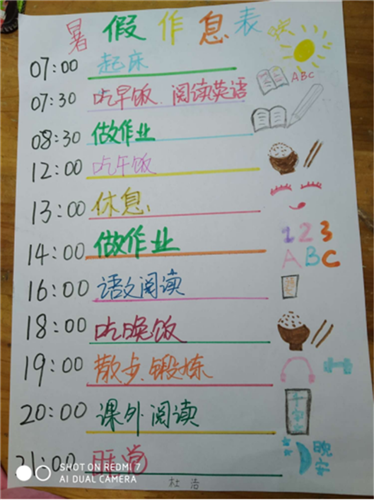 暑假作息表
07:00 起床
07:30 吃早饭、阅读英语
ABC
08:30 做作业
12:00 吃午饭
13:00 休息
14:00 做作业
123
ABC
16:00 语文阅读
18:00 吃晚饭
19:00 散步、锻炼
20:00 课外阅读
21:00
晚安
SHOT ON REDMI 7
AI DUAL CAMERA